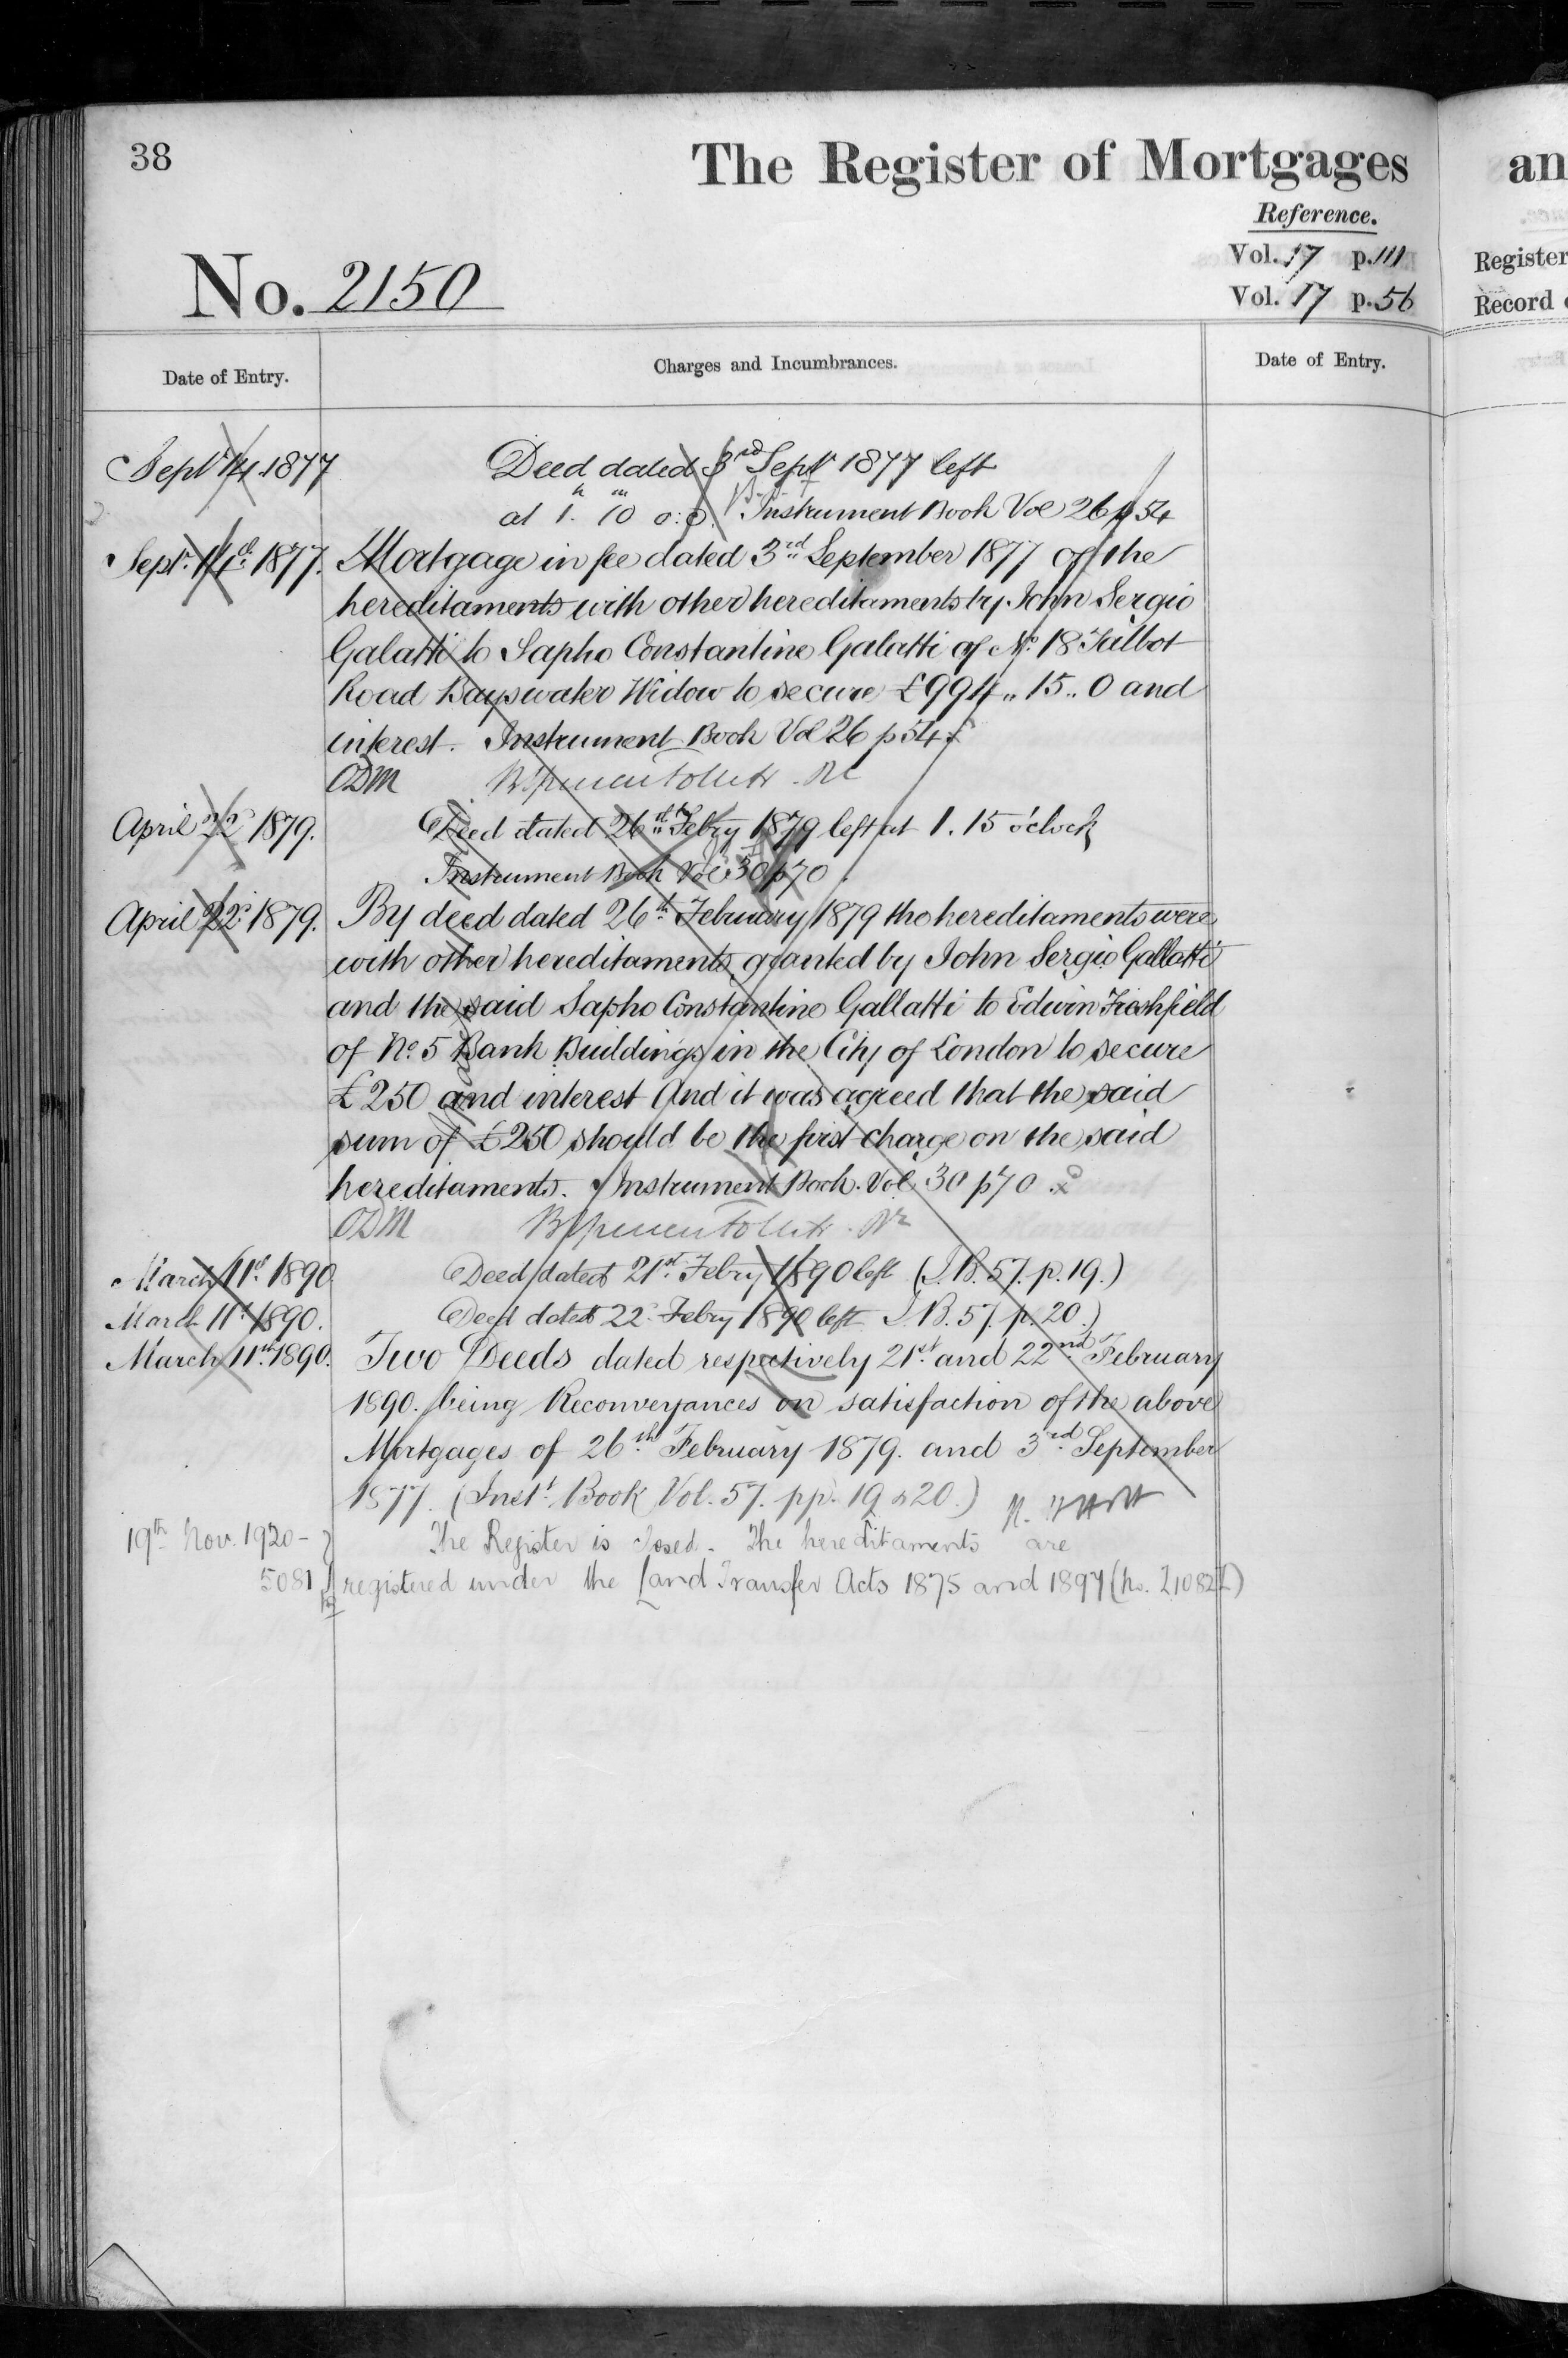 38
The Register of Mortgages
an
Reference.
Vol. 17 p. 111
Register
No. 2150
Vol. 17 p. 56
Record
Date of Entry.
Charges and Incumbrances.
Date of Entry.
Septr 14 1877
Deed dated 3rd Septr 1877 left
at 1h 10m o:c. Instrument Book Vol 26 p 54
Septr 14th 1877.
Mortgage in fee dated 3rd September 1877 of the
hereditaments with other hereditaments by John Sergio
Galatti to Sapho Constantine Galatti of No 18 Talbot
Road Bayswater Widow to secure £994 .. 15 .. 0 and
interest. Instrument Book Vol 26 p 54.
ODM
April 22d 1879.
Deed dated 26th Febry 1879 left at 1.15 o'clock
Instrument Book Vol 30 p 70.
April 22d 1879.
By deed dated 26th February 1879 the hereditaments were
with other hereditaments granted by John Sergio Gallatti
and the said Sapho Constantine Gallatti to Edwin Freshfield
of No 5 Bank Buildings in the City of London to secure
£250 and interest And it was agreed that the said
sum of £250 should be the first charge on the said
hereditaments. Instrument Book Vol 30 p 70.
ODM
March 11th 1890
Deed dated 21st Febry 1890 left (I.B. 57. p. 19.)
March 11th 1890.
Deed dated 22d Febry 1890 left I.B. 57. p. 20.)
March 11th 1890.
Two Deeds dated respectively 21st and 22nd February
1890. being Reconveyances on satisfaction of the above
Mortgages of 26th February 1879. and 3rd September
1877. (Inst. Book Vol. 57. pp. 19 & 20.)
19th Nov. 1920 -
The Register is closed. The hereditaments are
5081
registered under the Land Transfer Acts 1875 and 1897 (No.